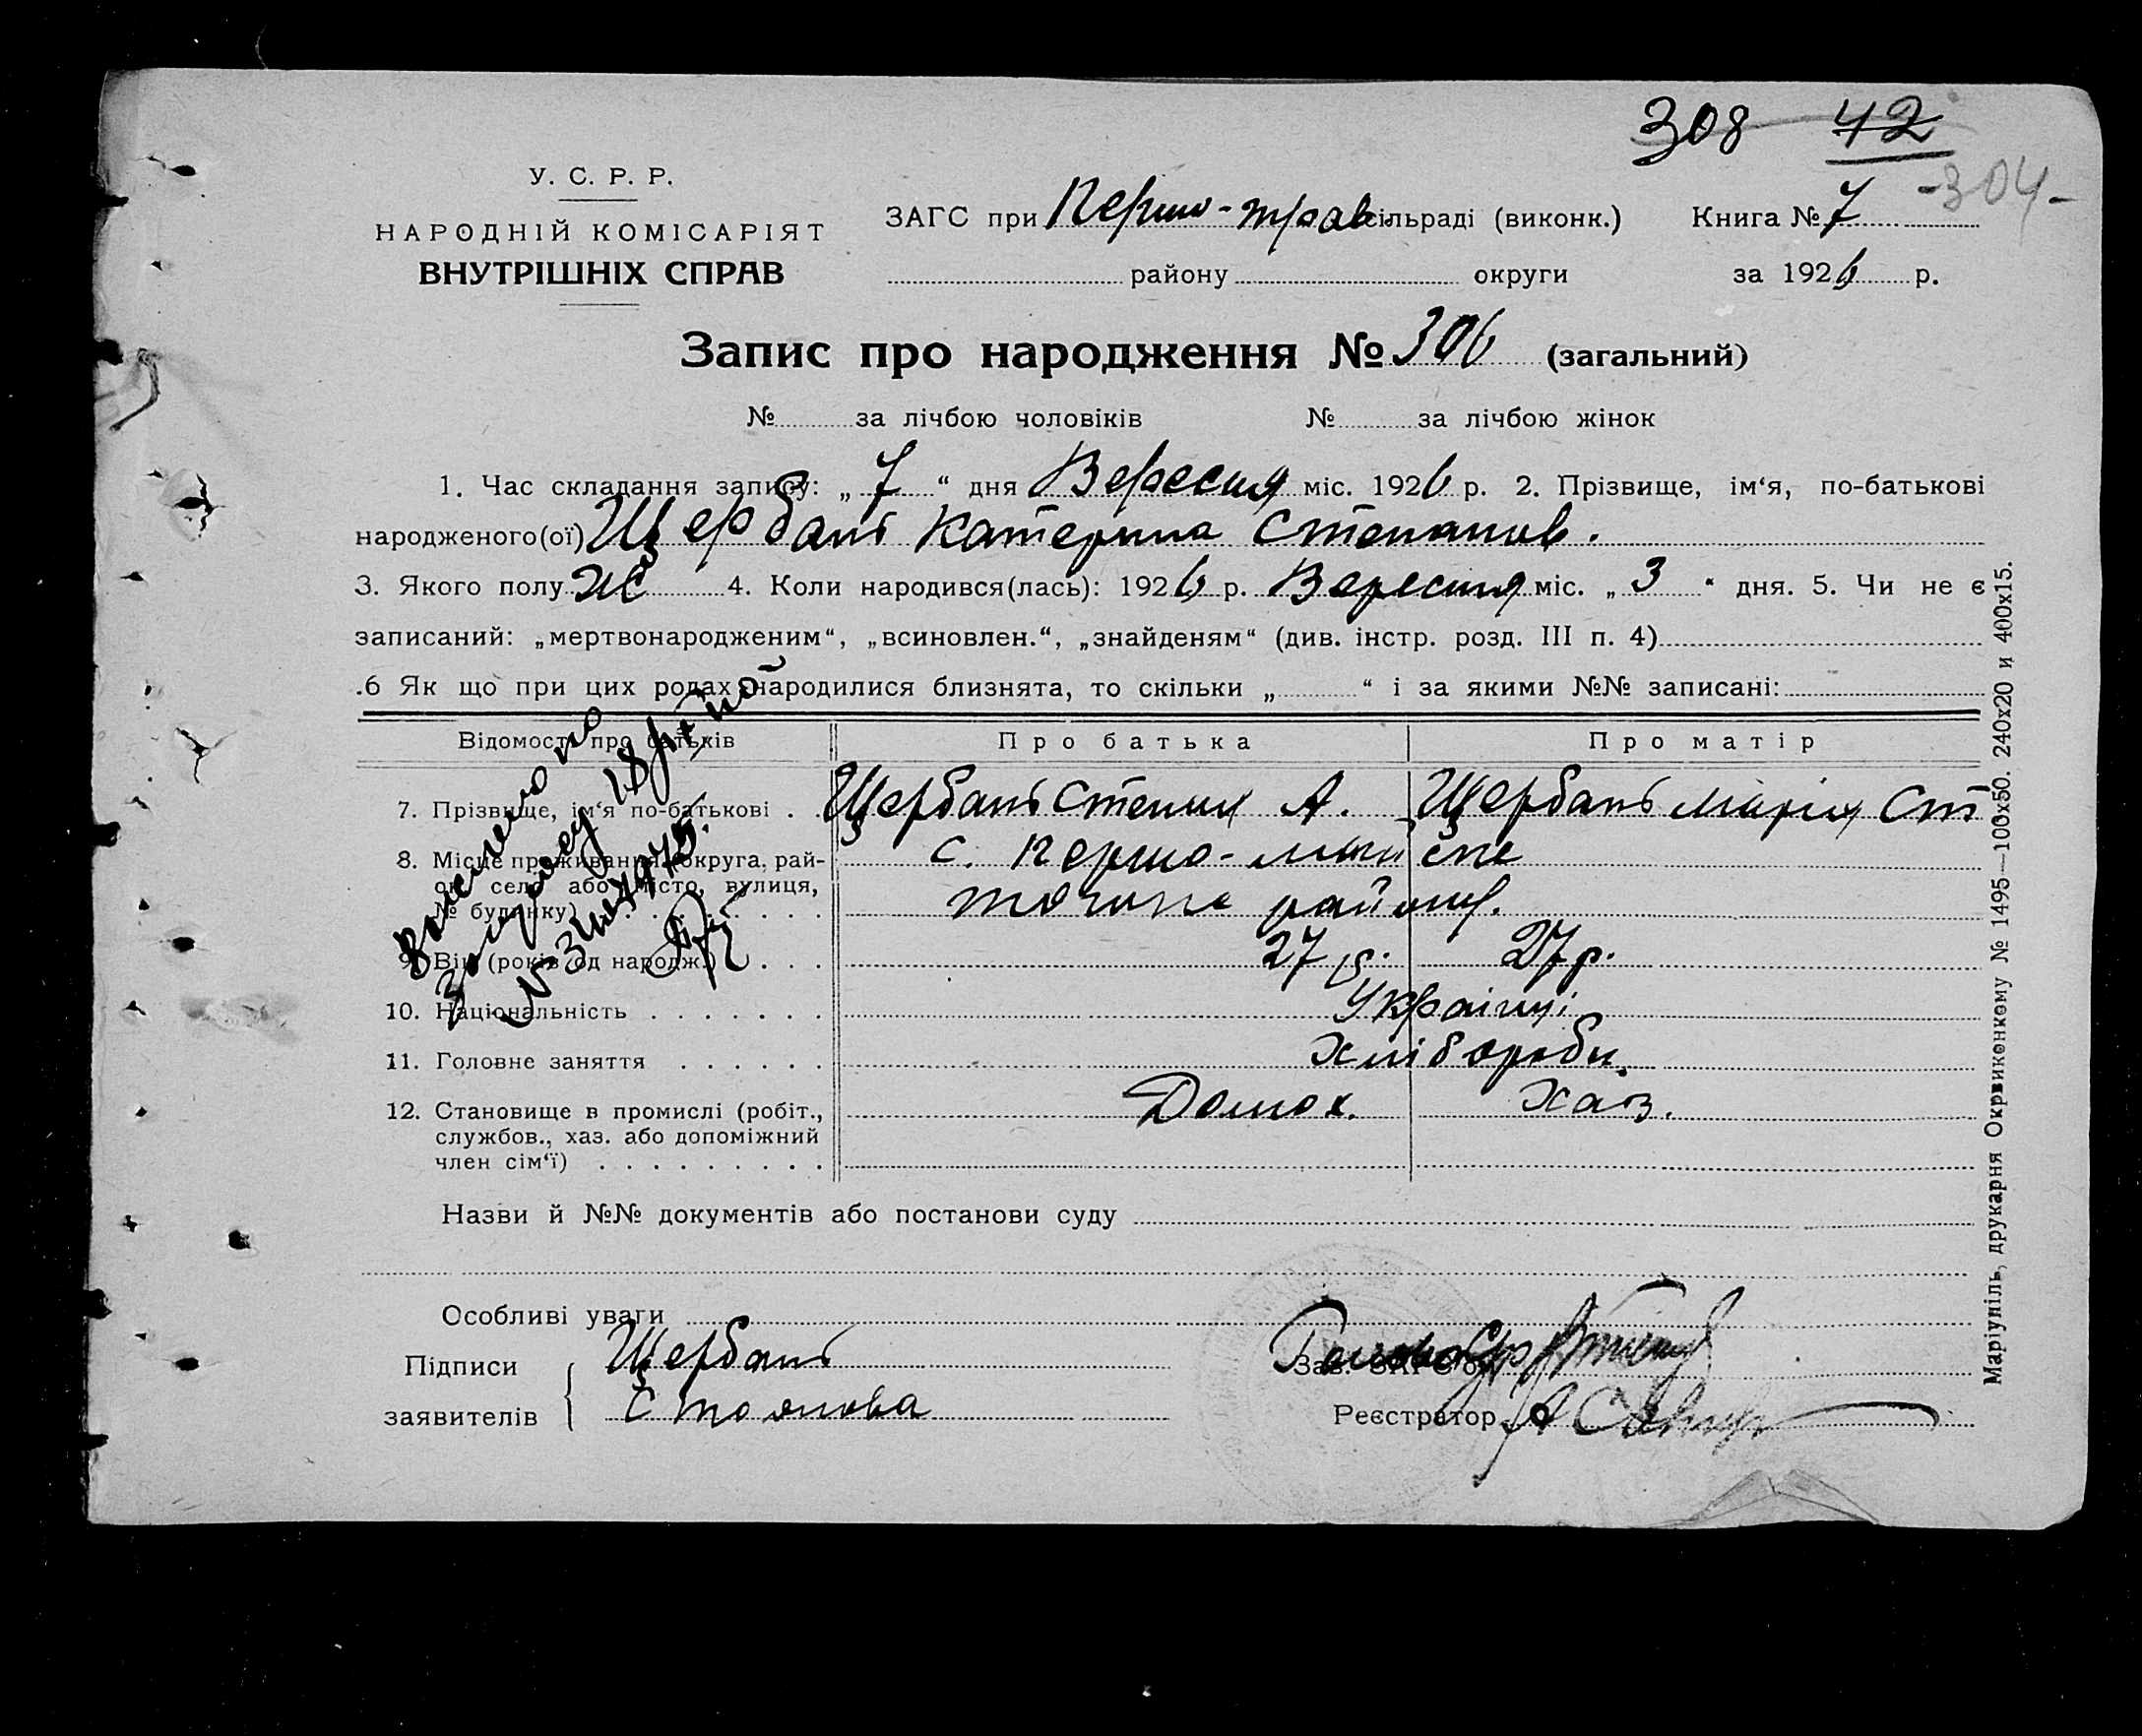 308 42
-304-
У. С. Р. Р.
НАРОДНІЙ КОМІСАРІЯТ
ВНУТРІШНІХ СПРАВ
ЗАГС при Першо-трав. сільраді (виконк.) Книга № 7
району округи за 1926 р.
Запис про народження № 306 (загальний)
№ за лічбою чоловіків № за лічбою жінок
1. Час складання запису: „ 7 “ дня Вересня міс. 1926 р. 2. Прізвище, ім‘я, по-батькові
народженого(ої) Щербань Катерина Степанов.
3. Якого полу Ж 4. Коли народився(лась): 1926 р. Вересня міс. „ 3 “ дня. 5. Чи не є
записаний: „мертвонародженим“, „всиновлен.“, „знайденям“ (див. інстр. розд. III п. 4)
.6 Як що при цих родах народилися близнята, то скільки „ “ і за якими №№ записані:
Відомості про батьків Про батька Про матір
7. Прізвище, ім‘я по-батькові . . Щербань Степан А. Щербань Марія Ст
8. Місце проживання (округа, рай- с. Першо-майське
он, село або місто, вулиця, району.
№ будинку)
9. Вік (років од народж.) . . . 27 р. 27 р.
10. Національність . . . . . . . Українці
11. Головне заняття . . . . . . Хлібороби.
12. Становище в промислі (робіт., Домох. Хаз.
службов., хаз. або допоміжний
член сім‘ї) . . . . . . . . .
Назви й №№ документів або постанови суду
Особливі уваги
Підписи Щербань Зав. ЗАГС‘ом
заявителів Стоянова Реєстратор
Маріупіль, друкарня Окрвиконкому № 1495—100х50. 240х20 и 400х15.